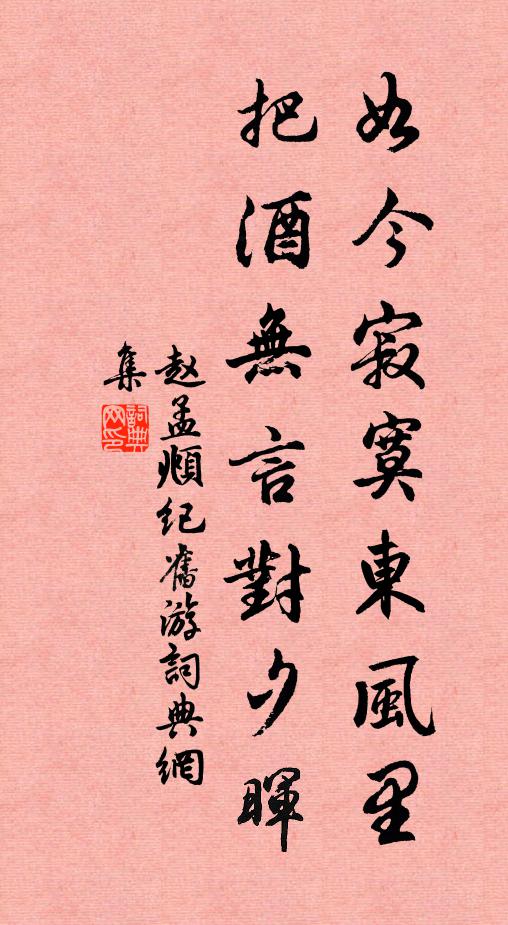 如今寂寞東風里
把酒無言對夕暉
赵孟頫纪舊游詞典網
集
詞典网印